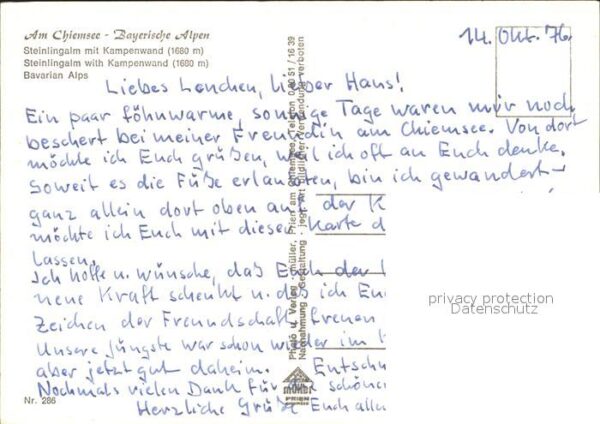 Am Chiemsee - Bayerische Alpen
Steinlingalm mit Kampenwand (1680 m)
Steinlingalm with Kampenwand (1680 m)
Bavarian Alps
14. Okt. 76
Liebes Lenchen, lieber Hans!
Ein paar föhnwarme, sonnige Tage waren mir noch
beschert bei meiner Freundin am Chiemsee. Von dort
möchte ich Euch grüßen, weil ich oft an Euch denke.
Soweit es die Füße erlaubten, bin ich gewandert -
ganz allein dort oben auf der K
möchte ich Euch mit dieser Karte d
lassen.
Ich hoffe u. wünsche, daß Euch der
neue Kraft schenkt u. daß ich Eu
Zeichen der Freundschaft freuen
Unsere Jüngste war schon wieder im
aber jetzt gut daheim. Entsch
Nochmals vielen Dank für schönen
Herzliche Grüße Euch alle
Photo u. Verlag müller, Prien am Chiemsee, Telefon 0 80 51 / 16 39
Nachahmung u. Gestaltung - jede Art bildlicher Verwendung verboten
müller
PRIEN
Nr. 286
privacy protection
Datenschutz